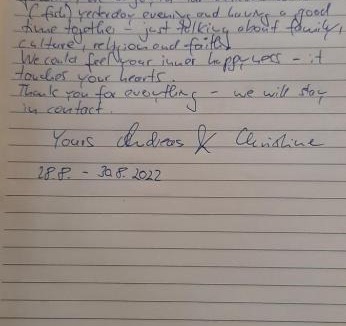 (fish) yesterday evening and having a good
time together - just talking about family,
culture, religion and faith.
We could feel your inner happyness - it
touches your hearts.
Thank you for everything - we will stay
in contact.
Yours Andreas & Christine
28.8. - 30.8.2022